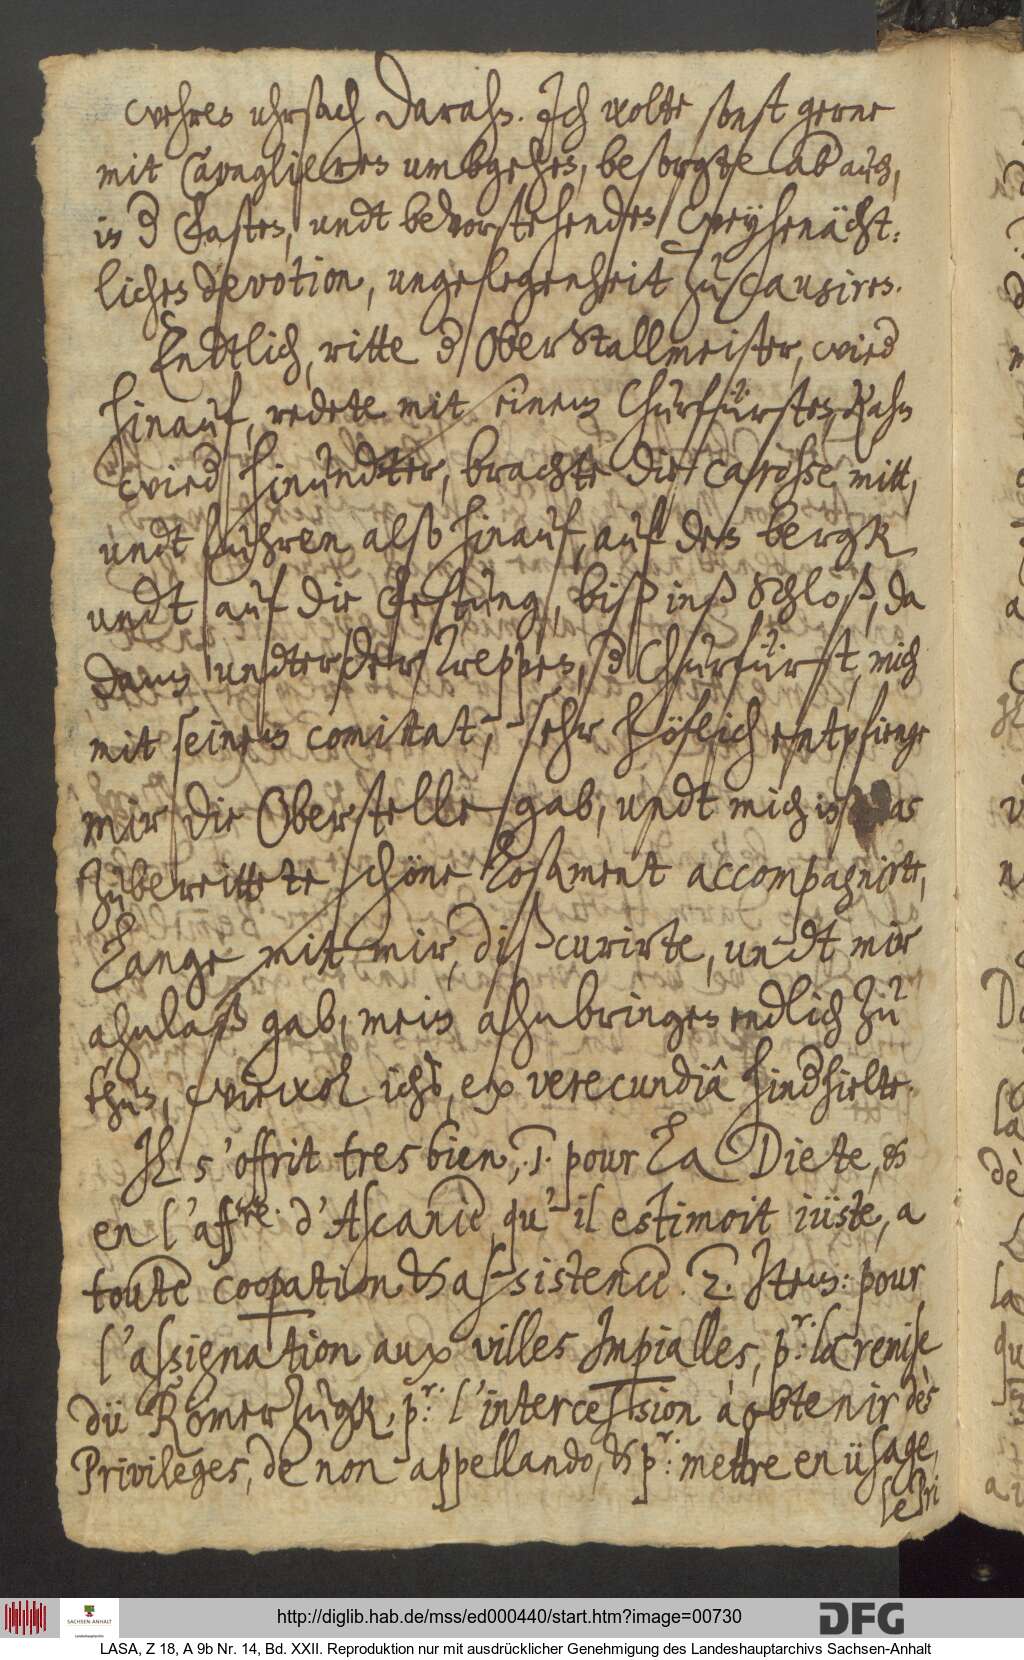 wehren uhrsach daran. Ich wolte sonst gerne
mit Cavaglieres umbgehen, besorgte aber auch,
in der Fasten, undt bevorstehenden Weyhenächt-
lichen devotion, ungelegenheit zu causiren.
Endtlich, ritte der OberStallmeister, wieder
hinauf, redete mit seinem Churfürsten, kahm
wieder hinundter, brachte die carosse mitt,
undt fuhren also hinauf, auf den bergk
undt auf die Festung, biß inß Schloß, da
dann undter der Treppen, der Churfürst, mich
mit seinem comittat, sehr höflich entpfienge
mir die Oberstelle gab, undt mich inß das
zubereittete schöne Losament accompagnirte,
Lange mit mir, dißcurirte, undt mir
ahnlaß gab, mein ahnbringen endlich zu
thun, wiewol ichs, ex verecundiâ hinderhielte.
Il s'offrit tres bien, .1. pour La Diete, &
en l'affre. d'Ascanie, qu'il estimoit iüste, a
toute coopation & assistence. 2. Item: pour
l'assignation aux villes Impialles, pr. la remise
dü RömerZugk, pr. l'intercession à obtenir des
Privileges, de non appellando, & pr. mettre en üsage,
le Pri
http://diglib.hab.de/mss/ed000440/start.htm?image=00730
DFG
SACHSEN-ANHALT
LASA, Z 18, A 9b Nr. 14, Bd. XXII. Reproduktion nur mit ausdrücklicher Genehmigung des Landeshauptarchivs Sachsen-Anhalt